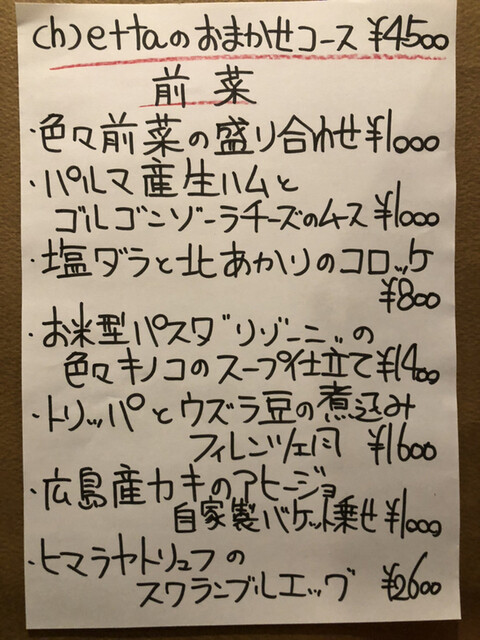 (h)ettaのおまかせコース ¥4500
前菜
・色々前菜の盛り合わせ¥1000
・パルマ産生ハムと
ゴルゴンゾーラチーズのムース¥1000
・塩ダラと北あかりのコロッケ
¥800
・お米型パスタ"リゾーニ"の
色々キノコのスープ仕立て¥1400
・トリッパとウズラ豆の煮込み
フィレンツェ風 ¥1600
・広島産カキのアヒージョ
自家製バケット乗せ¥1000
・ヒマラヤトリュフの
スクランブルエッグ ¥2600